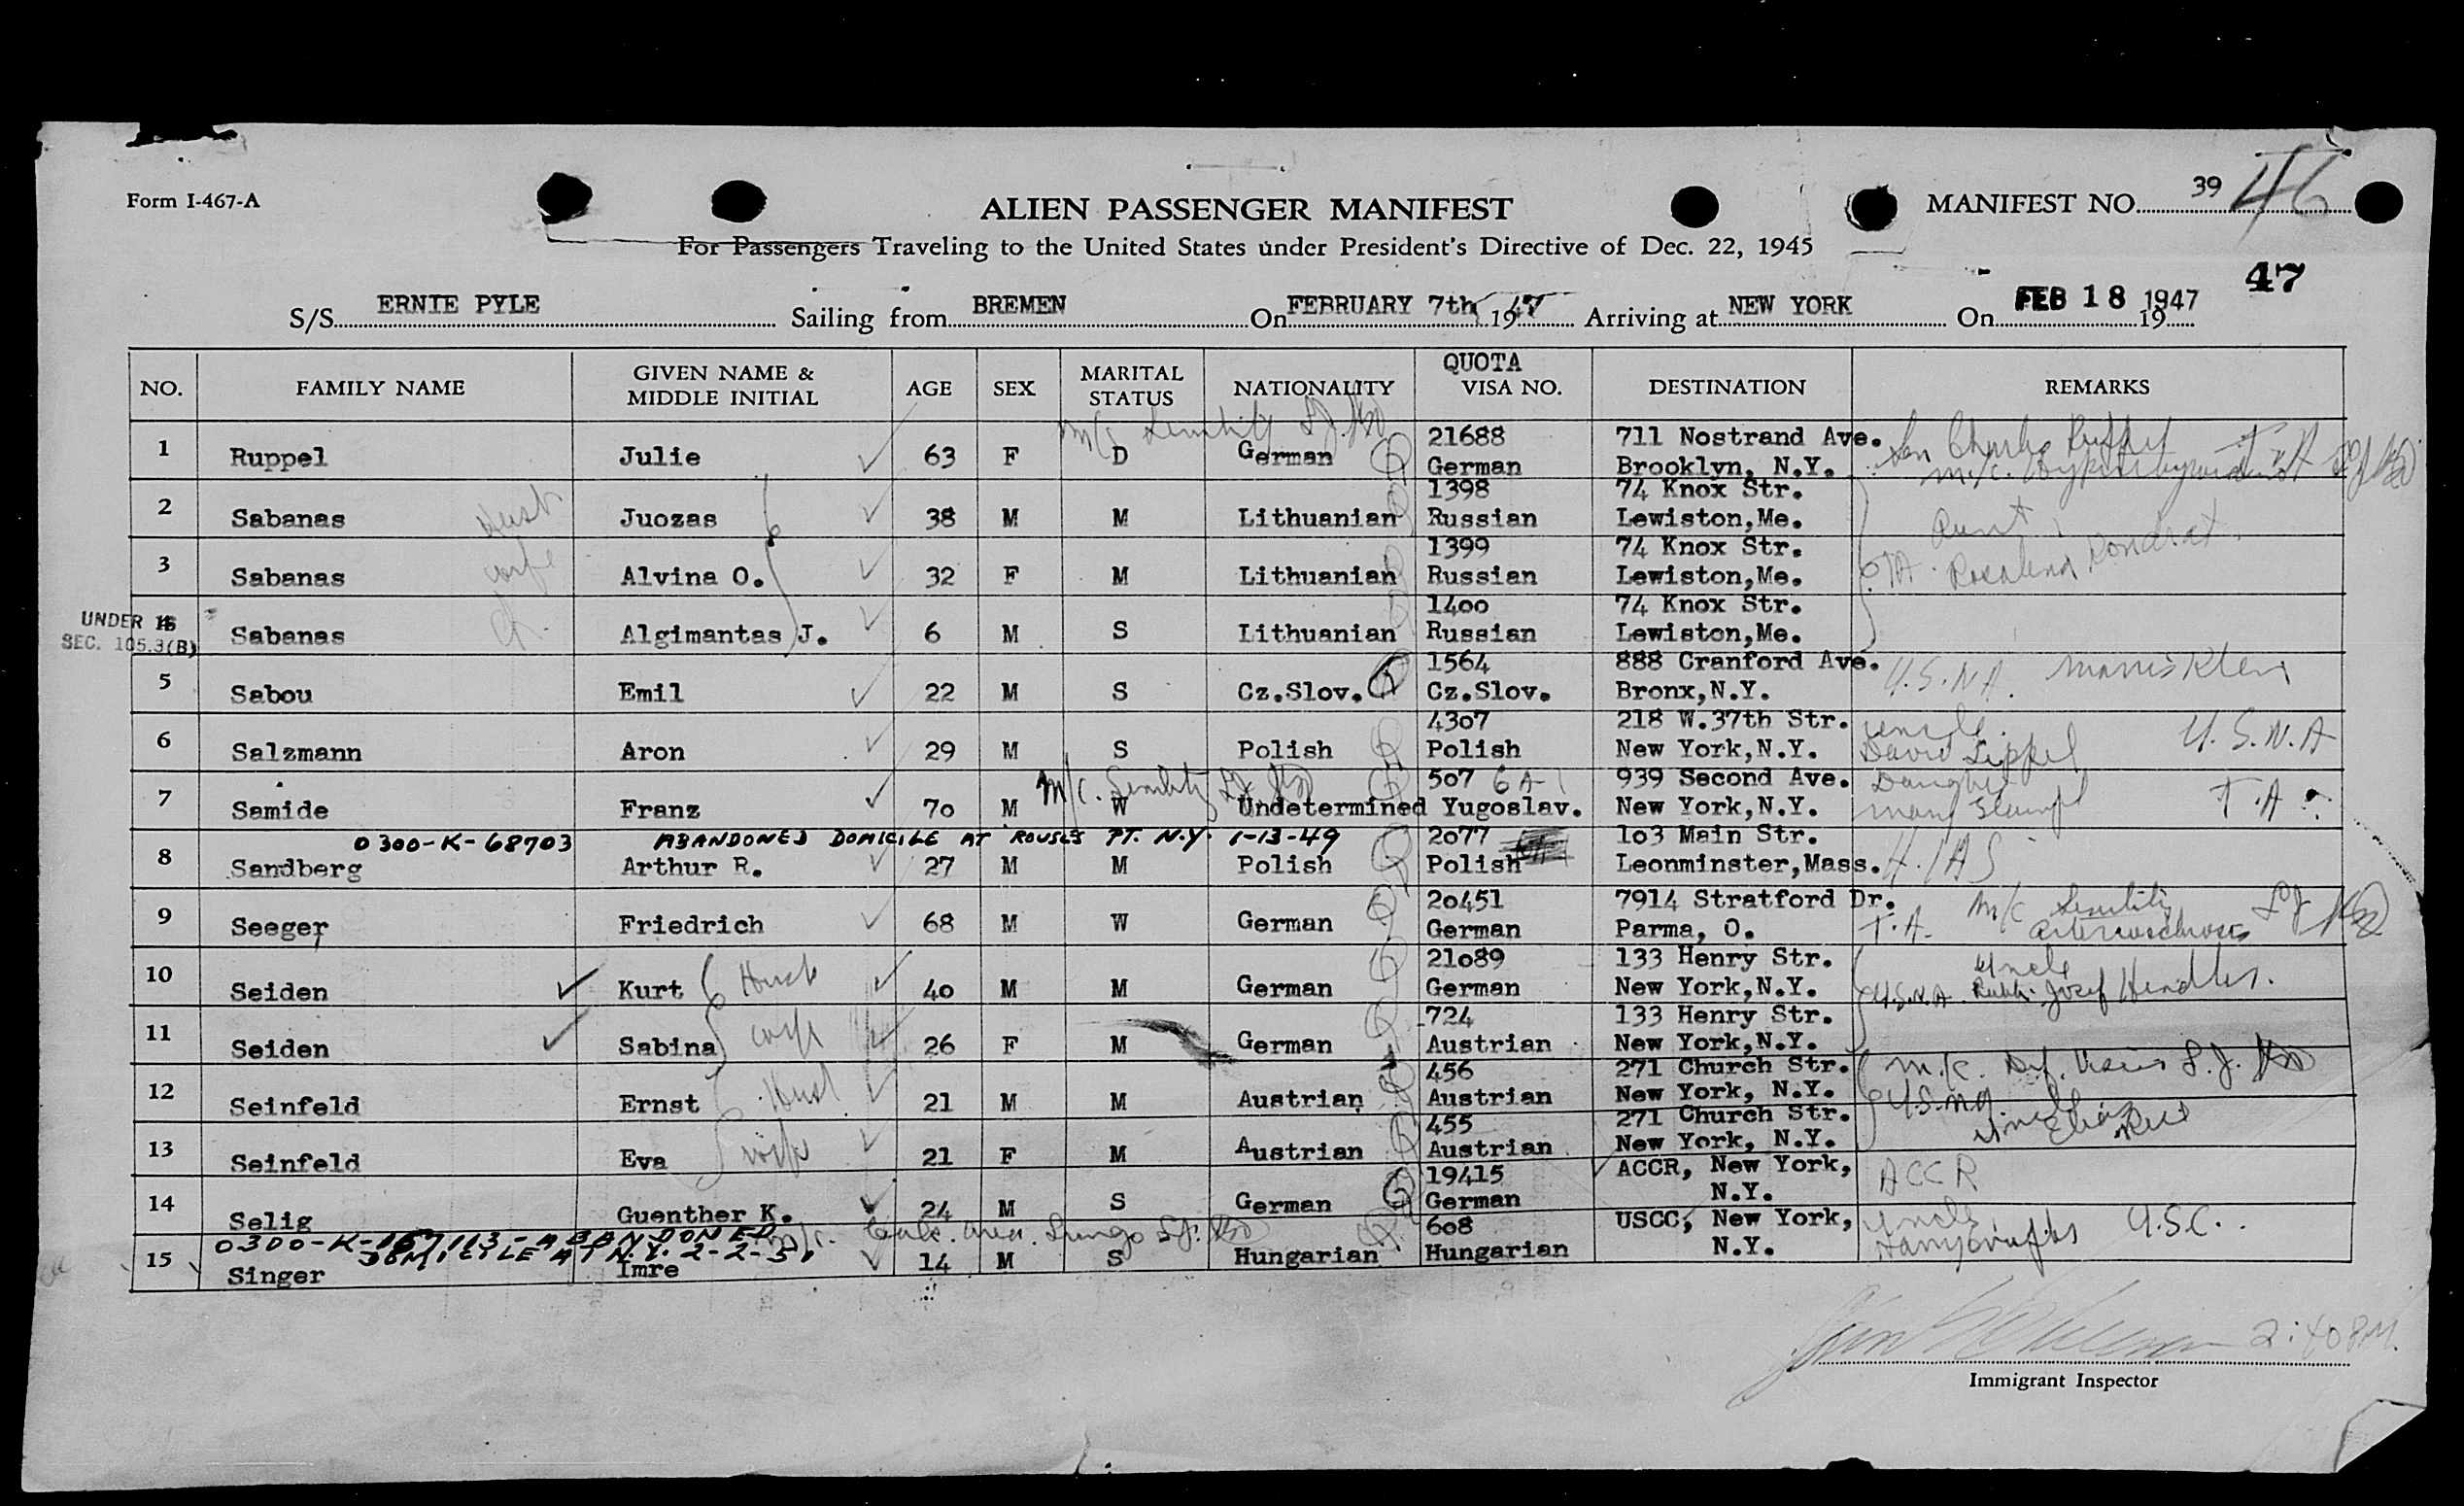 Form I-467-A
ALIEN PASSENGER MANIFEST
MANIFEST NO. 39 46
For Passengers Traveling to the United States under President's Directive of Dec. 22, 1945
47
S/S ERNIE PYLE Sailing from BREMEN On FEBRUARY 7th 1947 Arriving at NEW YORK On FEB 18 1947 19
NO. FAMILY NAME GIVEN NAME & MIDDLE INITIAL AGE SEX MARITAL STATUS NATIONALITY QUOTA VISA NO. DESTINATION REMARKS
m/c Senility
21688 711 Nostrand Ave. Son Charles Ruppel T A
1 Ruppel Julie 63 F D German German Brooklyn, N.Y. m/c.
1398 74 Knox Str.
2 Sabanas Husb Juozas 38 M M Lithuanian Russian Lewiston,Me. Aunt
1399 74 Knox Str.
3 Sabanas wife Alvina O. 32 F M Lithuanian Russian Lewiston,Me. TA. Rosalina Kondrat.
UNDER 16 1400 74 Knox Str.
SEC. 105.3(B) 4 Sabanas Ch. Algimantas J. 6 M S Lithuanian Russian Lewiston,Me.
1564 888 Cranford Ave.
5 Sabou Emil 22 M S Cz.Slov. Cz.Slov. Bronx,N.Y. U.S.N.A. Morris Klein
4307 218 W.37th Str. uncle U.S.N.A
6 Salzmann Aron 29 M S Polish Polish New York,N.Y. David Lippel
m/c. Senility 507 6A-1 939 Second Ave. Daughter
7 Samide Franz 70 M W Undetermined Yugoslav. New York,N.Y. Mary Stampf T.A.
0300-K-68703 ABANDONED DOMICILE AT ROUSES PT. N.Y. 1-13-49 2077 103 Main Str.
8 Sandberg Arthur R. 27 M M Polish Polish Leonminster,Mass. HIAS
20451 7914 Stratford Dr. m/c Senility
9 Seeger Friedrich 68 M W German German Parma, O. T.A. Arteriosclerosis
21089 133 Henry Str. Uncle
10 Seiden Kurt Husb 40 M M German German New York,N.Y. U.S.N.A. Rabbi Josef Hendler.
724 133 Henry Str.
11 Seiden Sabina wife 26 F M German Austrian New York,N.Y.
456 271 Church Str. m/c. Def. Vision S.J.
12 Seinfeld Ernst Husb 21 M M Austrian Austrian New York, N.Y. U.S.N.A.
455 271 Church Str. Uncle
13 Seinfeld Eva wife 21 F M Austrian Austrian New York, N.Y.
19415 ACCR, New York, ACCR
14 Selig Guenther K. 24 M S German German N.Y.
0300-K-167113-ABANDONED m/c. 608 USCC, New York, Uncle U.S.C.
DOMICILE AT N.Y. 2-2-51
15 Singer Imre 14 M S Hungarian Hungarian N.Y.
2:40 PM.
Immigrant Inspector